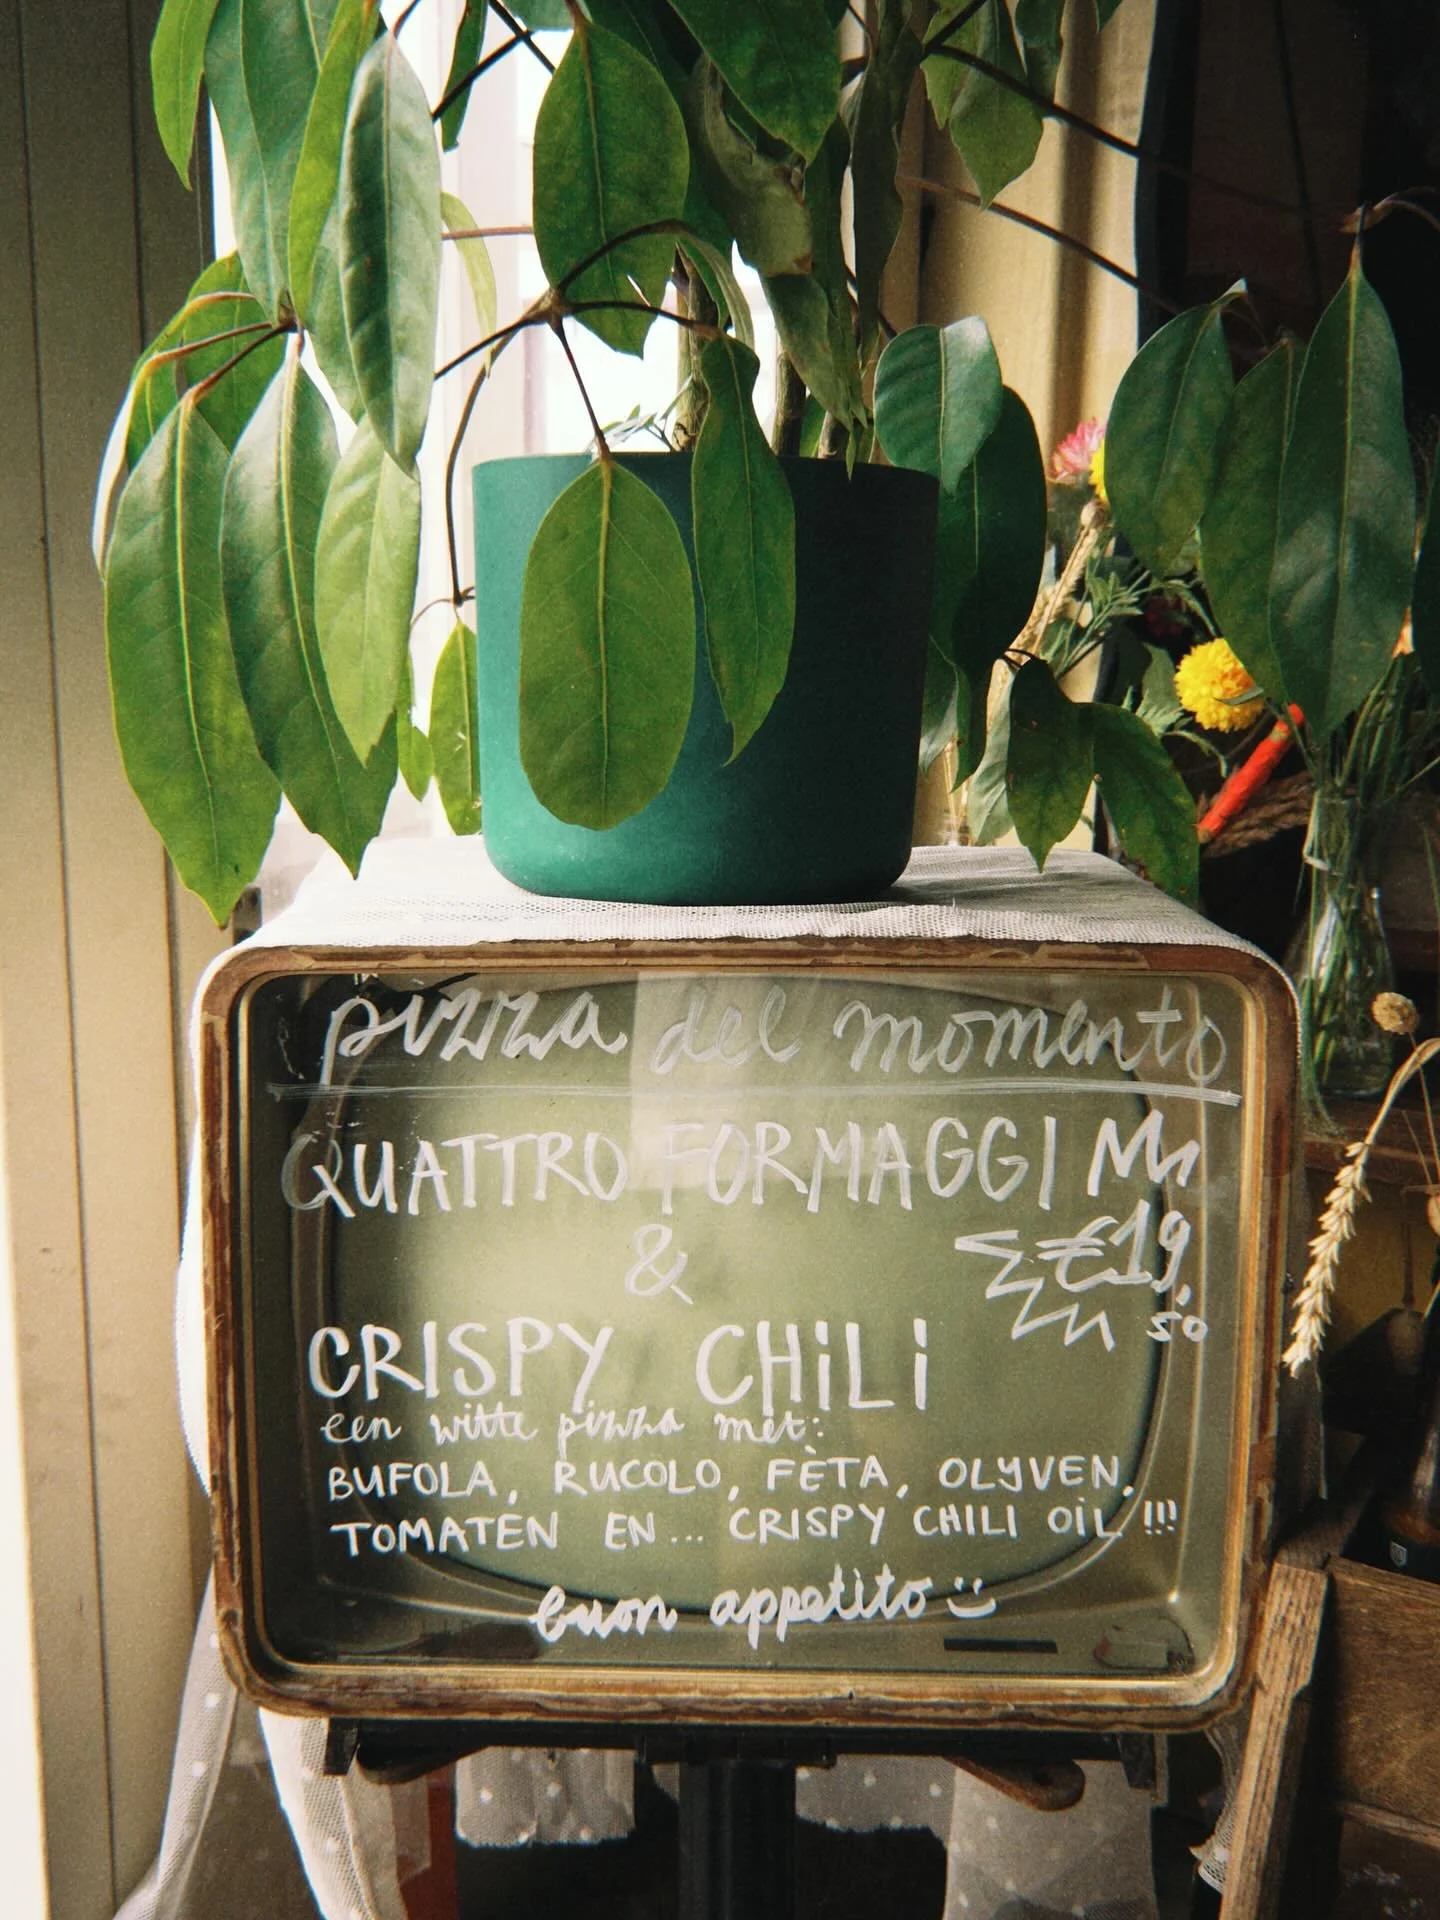 pizza del momento
QUATTRO FORMAGGI
&
€19,50
CRISPY CHiLi
een witte pizza met:
BUFOLA, RUCOLO, FÈTA, OLYVEN,
TOMATEN EN... CRISPY CHILI OIL !!!
buon appetito